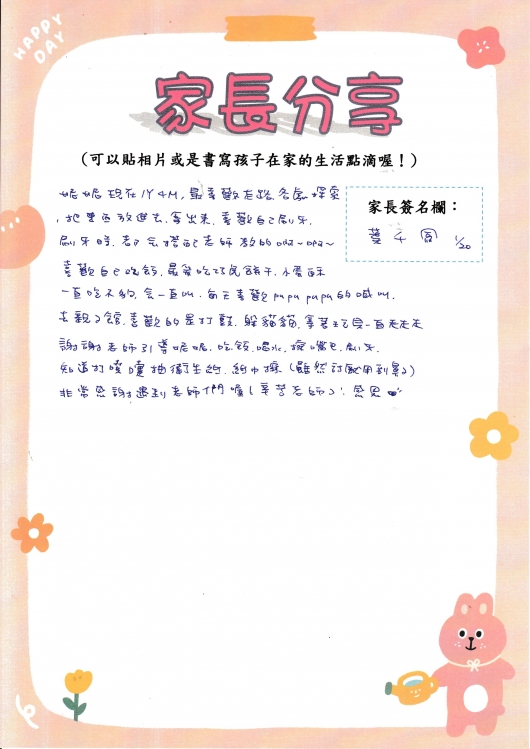 HAPPY DAY
家長分享
(可以貼相片或是書寫孩子在家的生活點滴喔！)
妮妮現在1Y4M，最喜歡走路、各處探索
，把東西放進去、拿出來，喜歡自己刷牙，
刷牙時，都會搭配老師教的啊~啊~
喜歡自己吃飯，最愛吃巧克餅干、小
一直吃不夠，會一直叫，每天喜歡papa papa的喊叫，
去親子館，喜歡的是打鼓、躲貓貓，拿著玩具一直走走走
謝謝老師引導妮妮，吃飯、喝水、擦嘴巴、刷牙，
知道打噴嚏抽衛生紙、紙巾擦(雖然討厭用到鼻)
非常感謝遇到老師們喔(辛苦老師)！感恩
家長簽名欄：
葉千 1/20